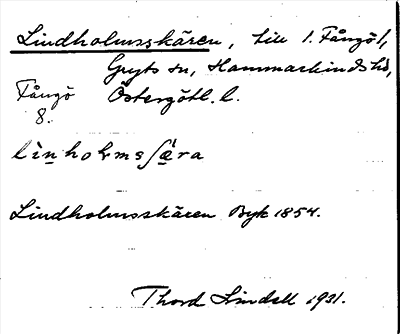 Lindholmsskären, till 1. Fångö/,
Gryts sn, Hammarkinds hd,
Fångö Östergötl. l.
8.
lìn̲hoɫmsʃæ̀ra
Lindholmsskären Byk 1854.
Thord Lindell 1931.